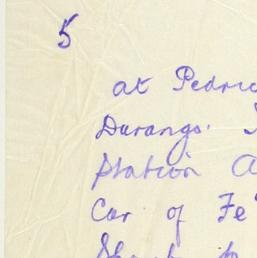 5
at Pedric
Durango.
Station
Car of Fe